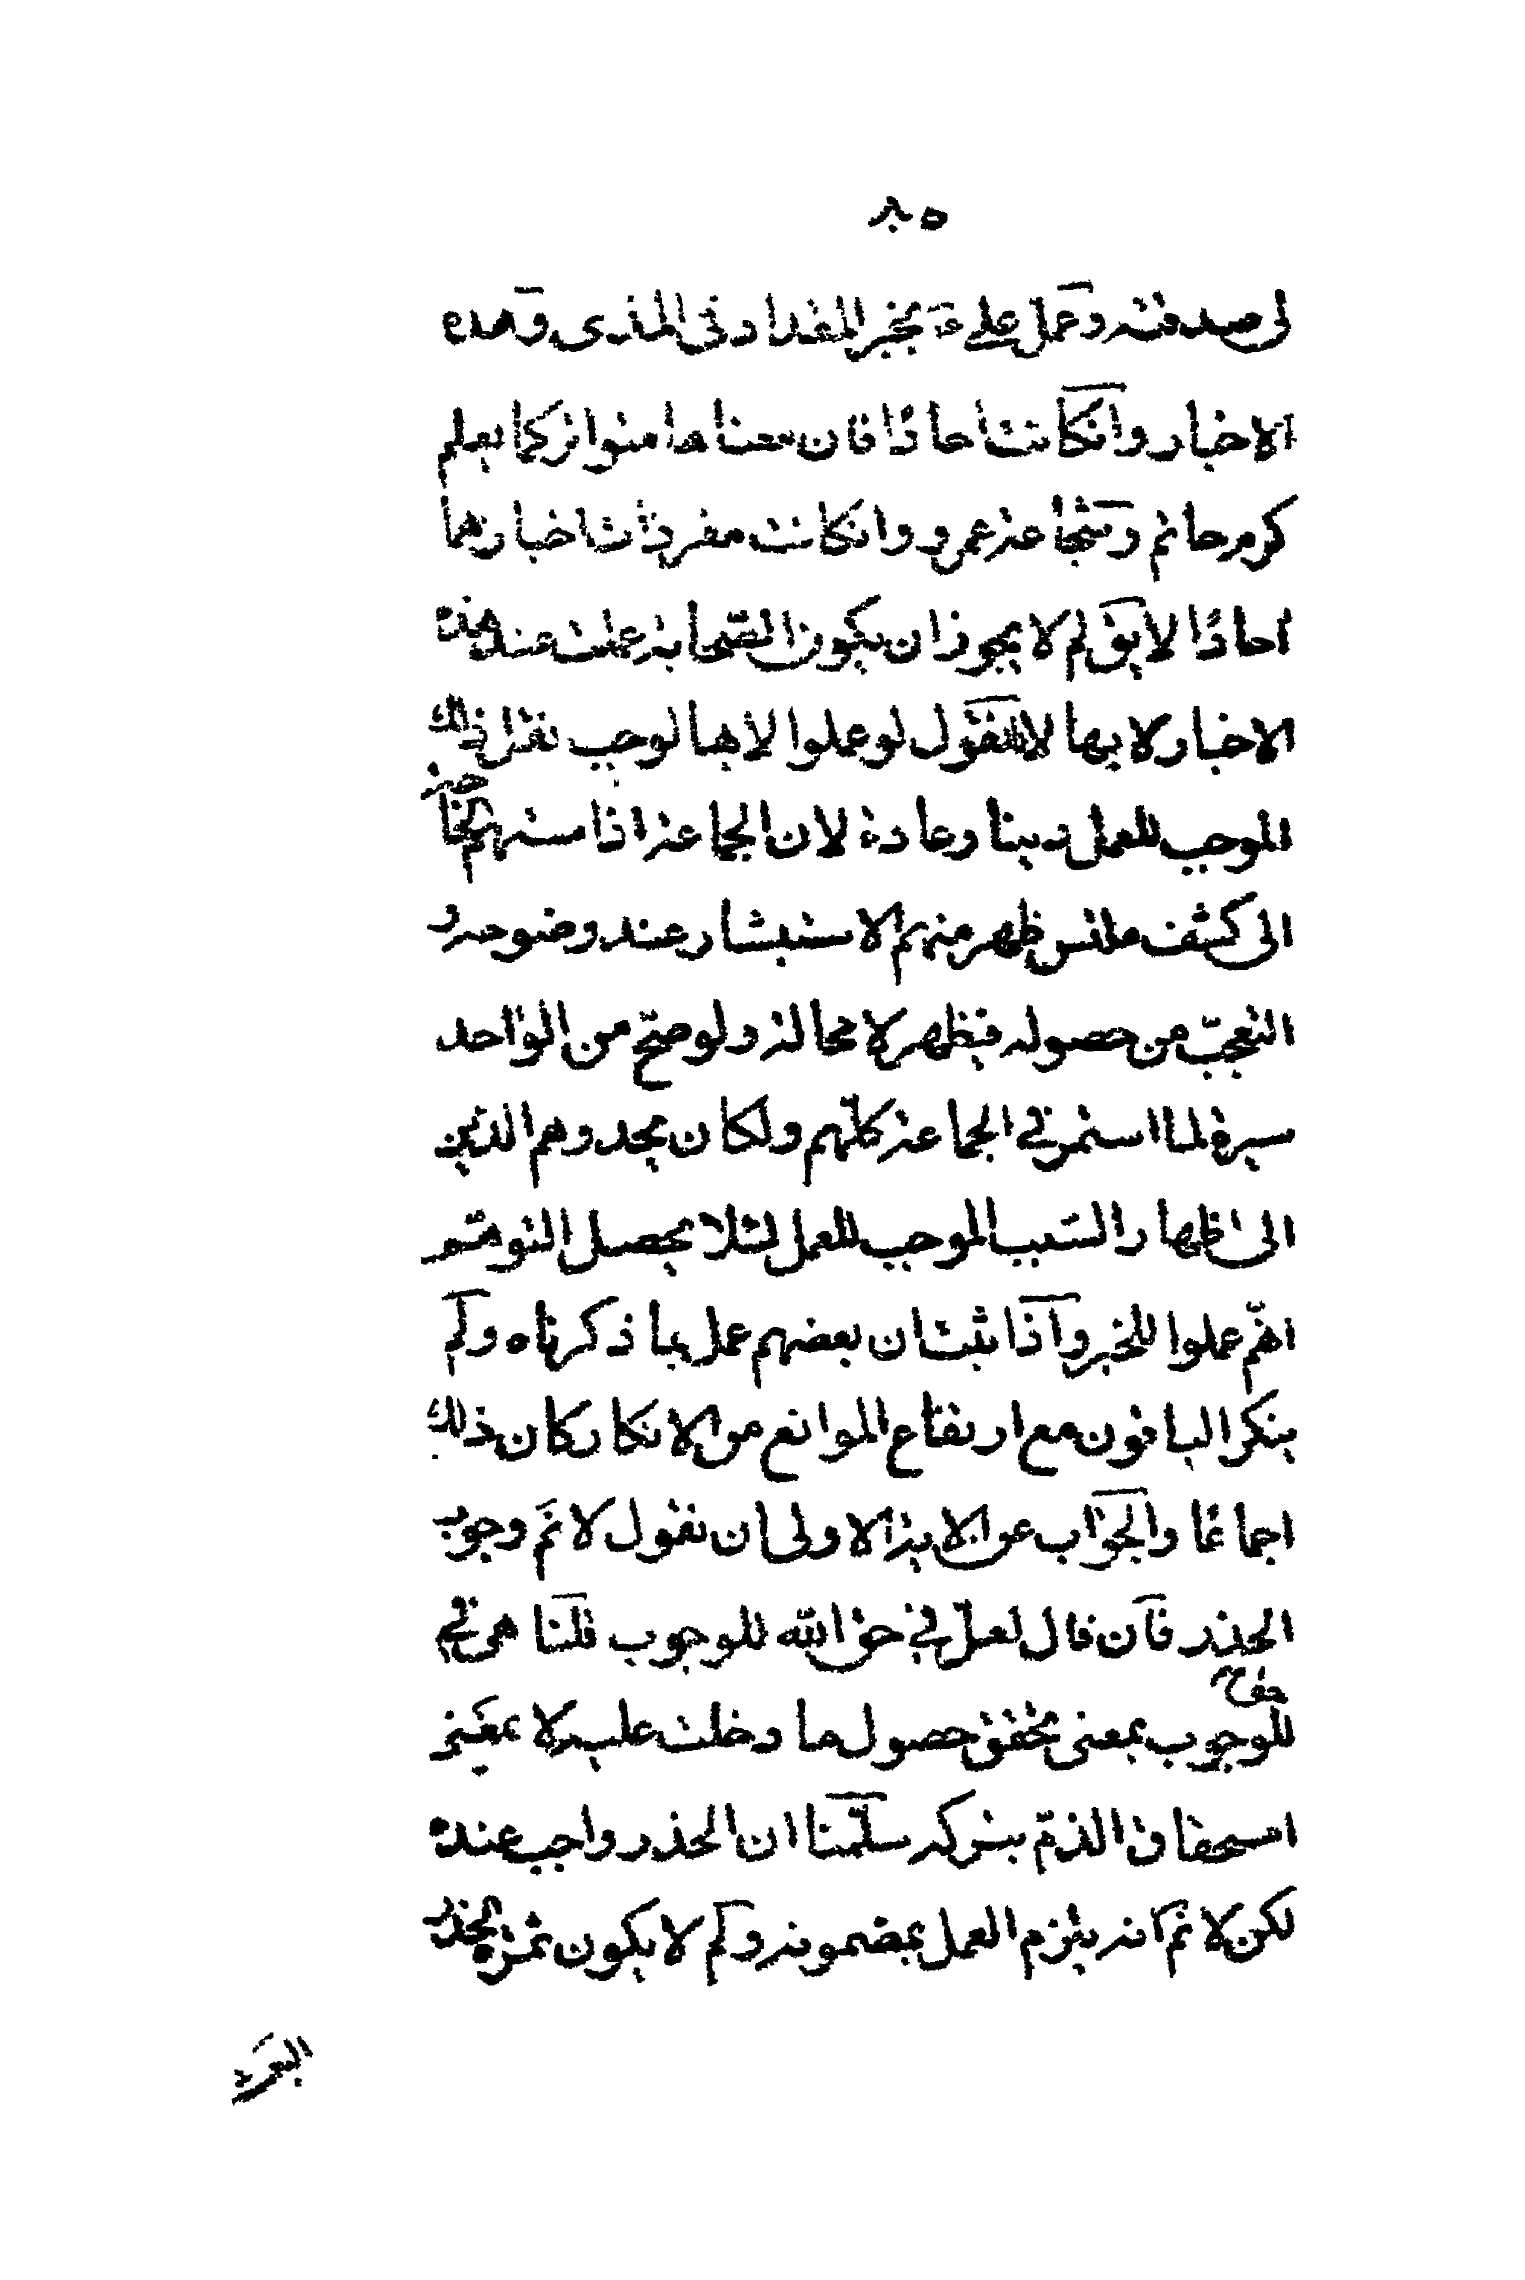 لى صدقته وعمل على ع بخبر المقداد فى المذى وهذه
الاخبار وانكانت احادًا فان معناها متواتر كما يعلم
كرم حاتم وشجاعة عمرو وانكانت مفردات اخبارهما
احادًا لا يق لم لا يجوز ان يكون الصّحابة عملت عند هذه
الاخبار لا بها لانا نقول لو عملوا لا بها لوجب نقل ذلك
الموجب للعمل دينا وعادة لان الجماعة اذا مستهم الحاجة
الى كشف ملتبس ظهر منهم الاستبشار عند وضوحه و
التعجّب من حصوله فيظهر لا محالة ولو صحّ من الواحد
ستره لما استمر فى الجماعة كلّهم ولكان يحدوهم الدين
الى اظهار السّبب الموجب للعمل لئلا يحصل التوهّم
انهّم عملوا للخبر واذا ثبت ان بعضهم عمل بما ذكرناه ولم
ينكر الباقون مع ارتفاع الموانع من الانكار كان ذلك
اجماعًا والجواب عن الاية الاولى ان نقول لا نم وجوب
الحذر فان قال لعلّ فى حق الله للوجوب قلنا هى فى حقه
للوجوب بمعنى تحقق حصول ما دخلت عليه لا بمعنى
استحقاق الذمّ بتركه سلّمنا ان الحذر واجب عنده
لكن لا نم انه يلزم العمل بمضمونه ولم لا يكون ثمرة الحذر